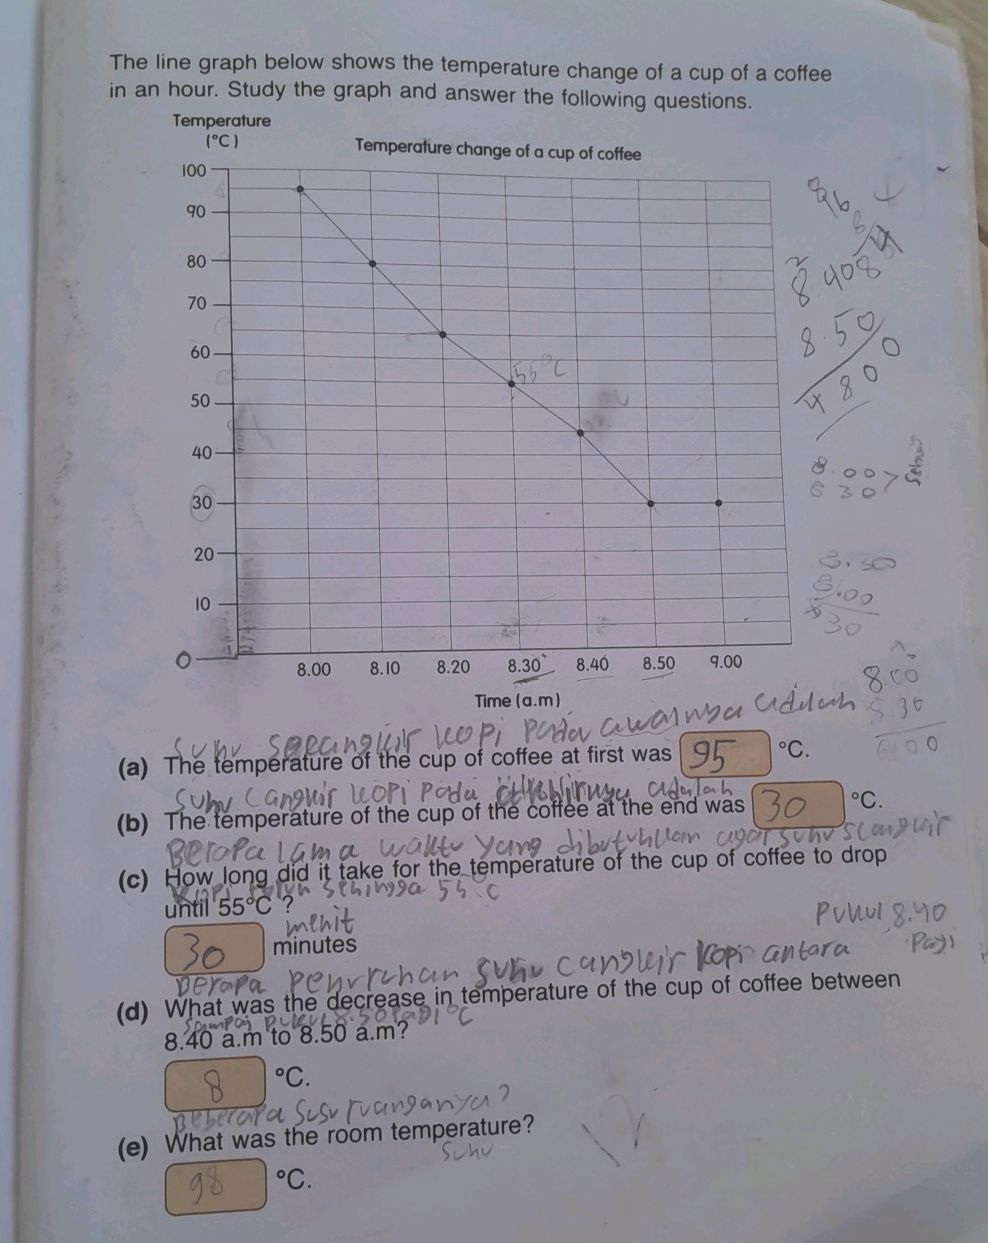 The line graph below shows the temperature change of a cup of a coffee
in an hour. Study the graph and answer the following questions.
Temperature
(°C)
Temperature change of a cup of coffee
100
90
80
70
60
50
40
30
20
10
0
55°C
8.00 8.10 8.20 8.30 8.40 8.50 9.00
Time (a.m)
8.50
4800
8.00
8.30
8.00
30
8.00
Suhu secangkir kopi pada awalnya adalah
(a) The temperature of the cup of coffee at first was 95 °C.
Suhu cangkir kopi pada adalah
(b) The temperature of the cup of the coffee at the end was 30 °C.
Berapa lama waktu yang dibutuhkan agar suhu
(c) How long did it take for the temperature of the cup of coffee to drop
sehingga 55°C
until 55°C ?
menit
30 minutes
Pukul 8.40
Pagi
Berapa suhu cangkir kopi antara
(d) What was the decrease in temperature of the cup of coffee between
Pukul 8.50 °C
8.40 a.m to 8.50 a.m?
8 °C.
Beberapa susu ruanganya?
(e) What was the room temperature?
Suhu
98 °C.